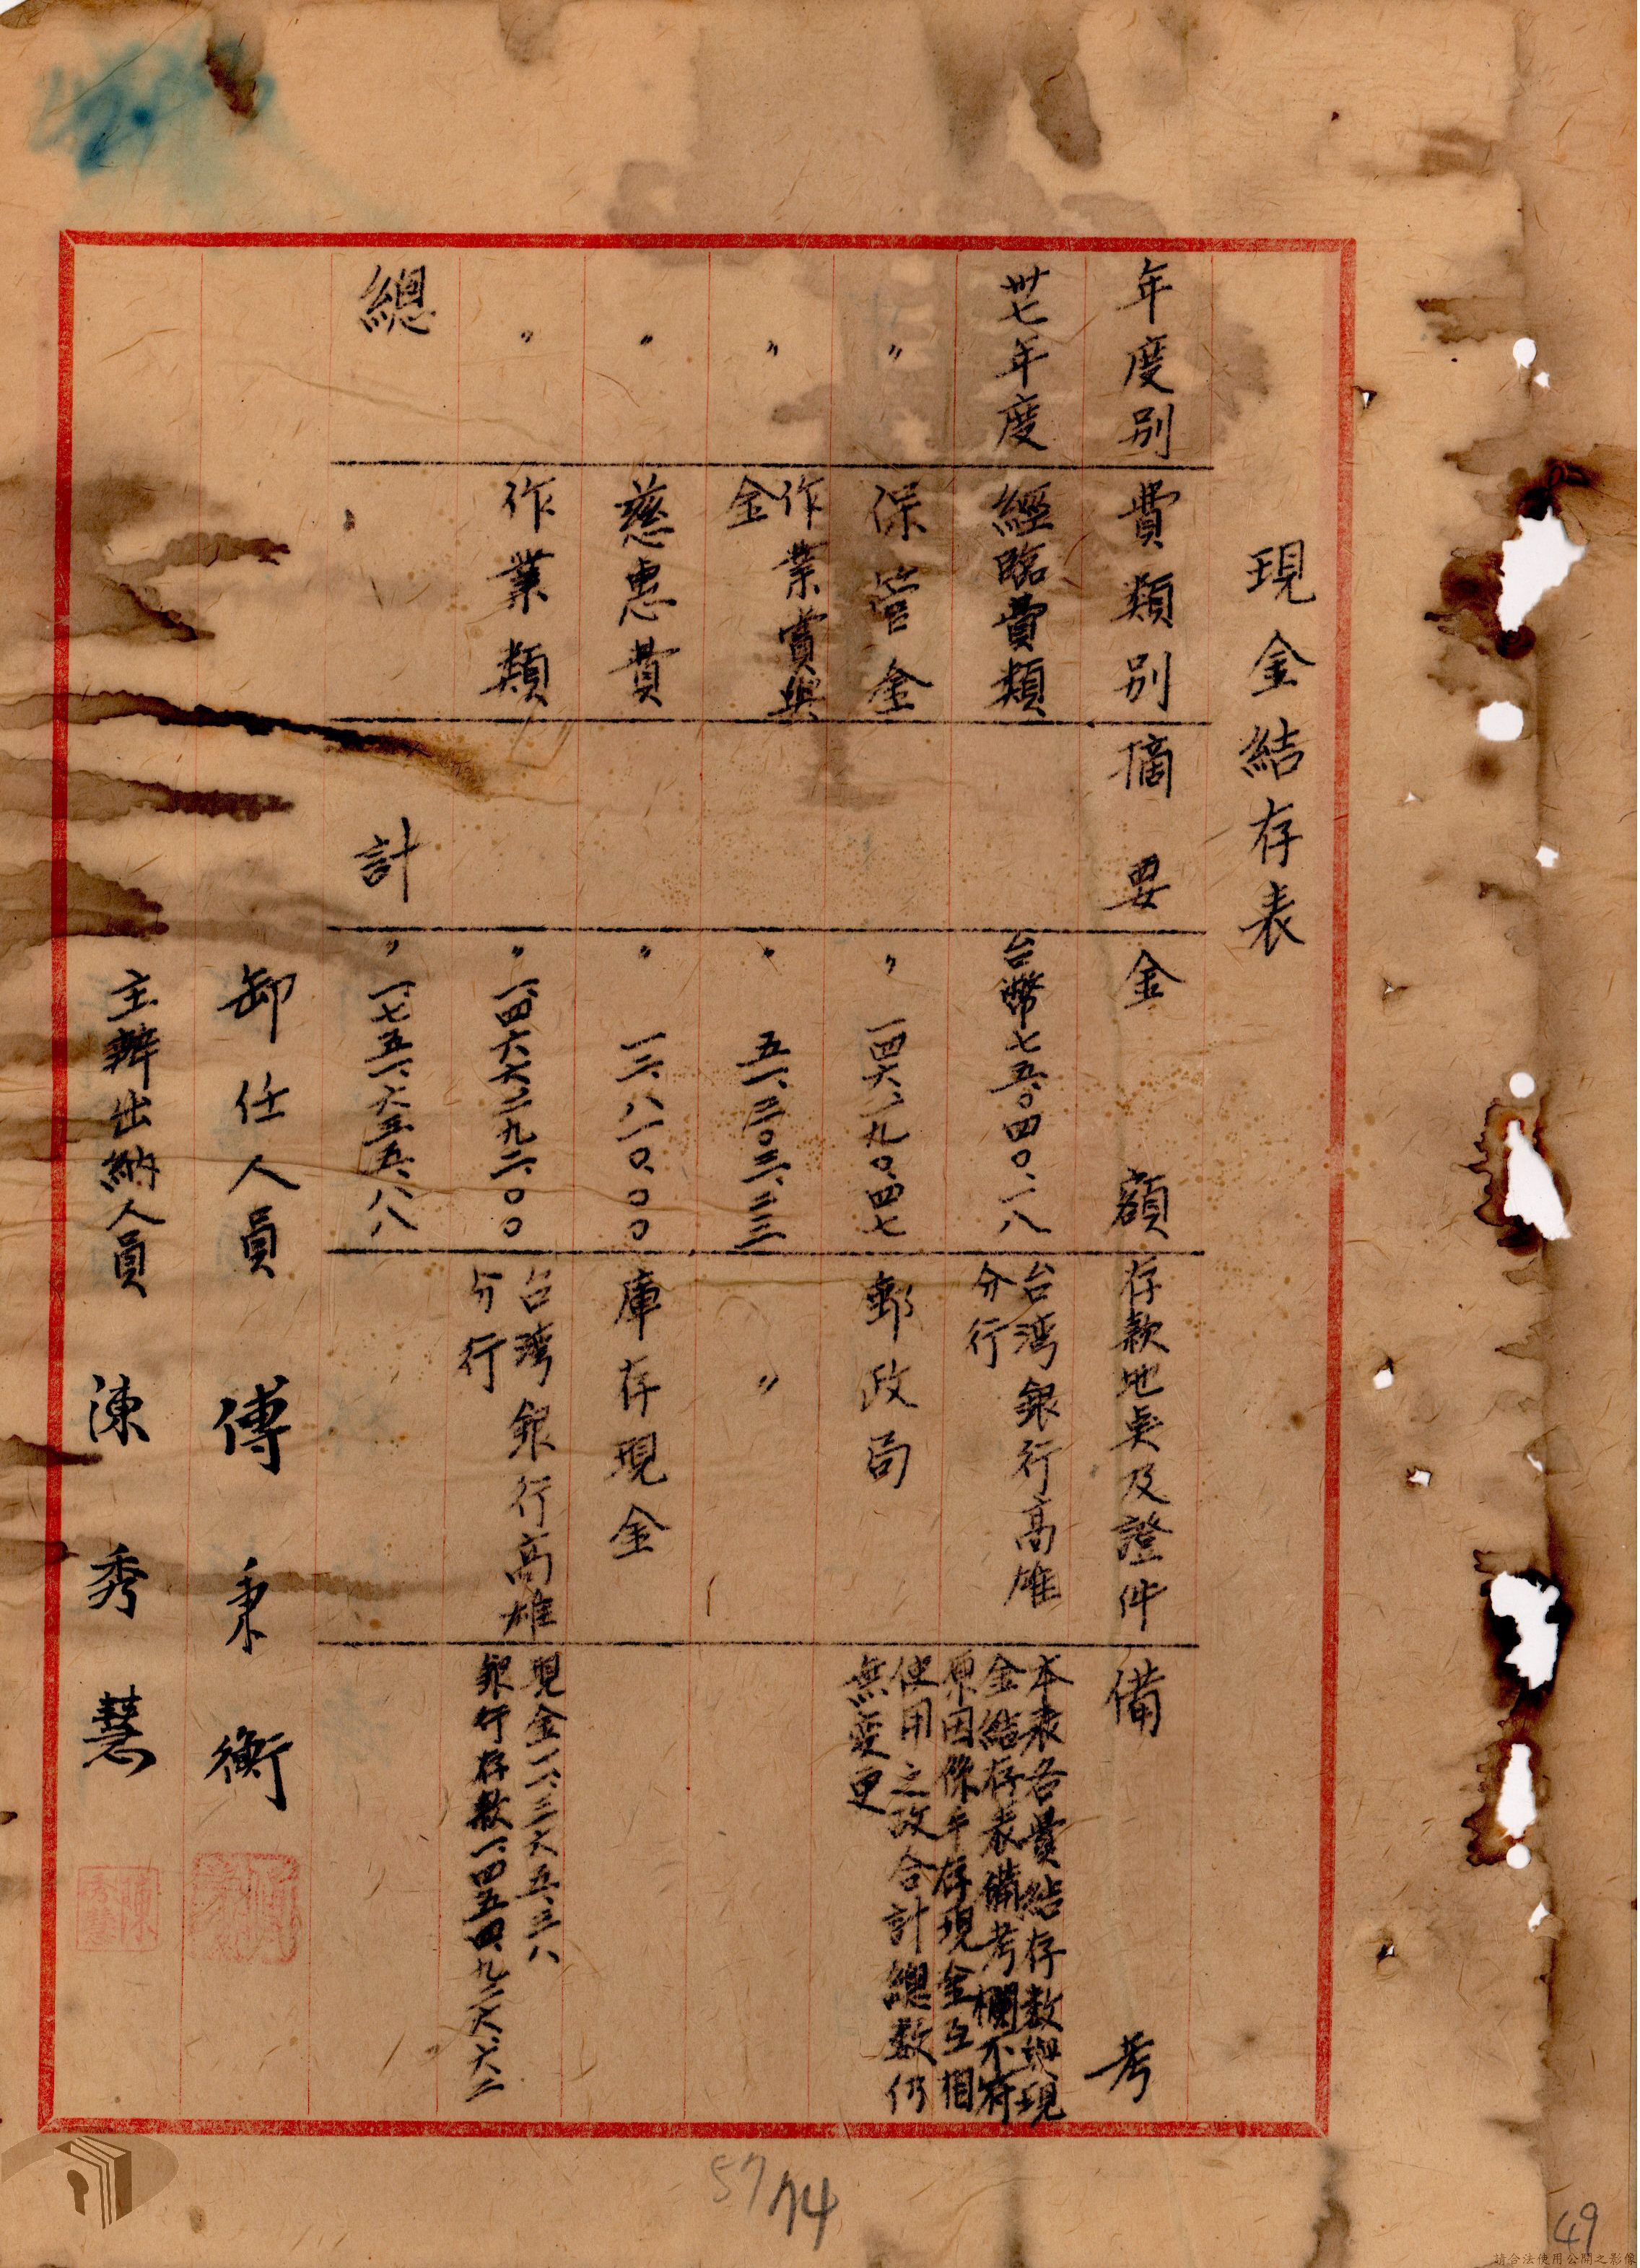 現金結存表
年度別 費類別 摘要 金額 存款地點及證件 備考
卅七年度 經臨費類 台幣七五、〇四〇.一八 台湾銀行高雄分行 本表各費結存数與現金結存表備考欄不符原因係年存現金互相使用之故合計總数仍無变更
〃 保管金 〃一四六、一九〇.四七 郵政局
〃 作業賞與金 〃五一、三〇三.二三 〃
〃 慈惠費 〃一二、八一〇.〇〇 庫存現金
〃 作業類 〃一、四六六、二九二.〇〇 台湾銀行高雄分行 現金一一、三六五.三八 銀行存款一、四五四、九二六.六二
總計 〃一、七五一、六五五.八八
卸任人員 傅秉衡
主辦出納人員 陳秀慧
陳秀慧
57
74
49
請合法使用公開之影像